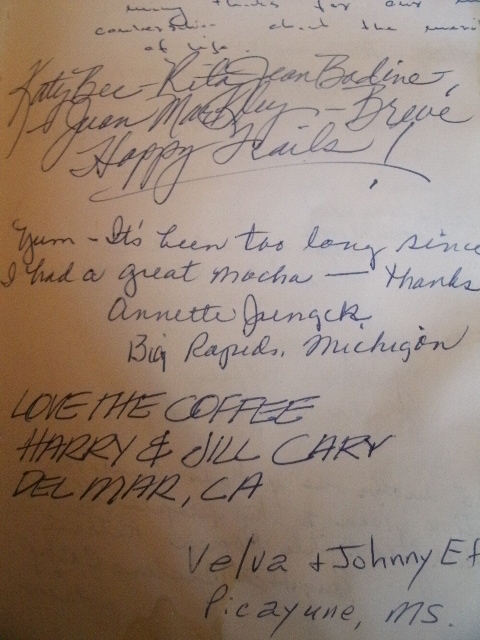 many thanks for our
conversation about the
of life.
Katy Bee - Rita Jean Bodine -
+ Juan Markley - Breve
Happy Trails!
Yum - It's been too long since
I had a great mocha — thanks
Annette
Big Rapids, Michigan
LOVE THE COFFEE
HARRY & JILL CARY
DEL MAR, CA
Velva + Johnny Ef
Picayune, MS.